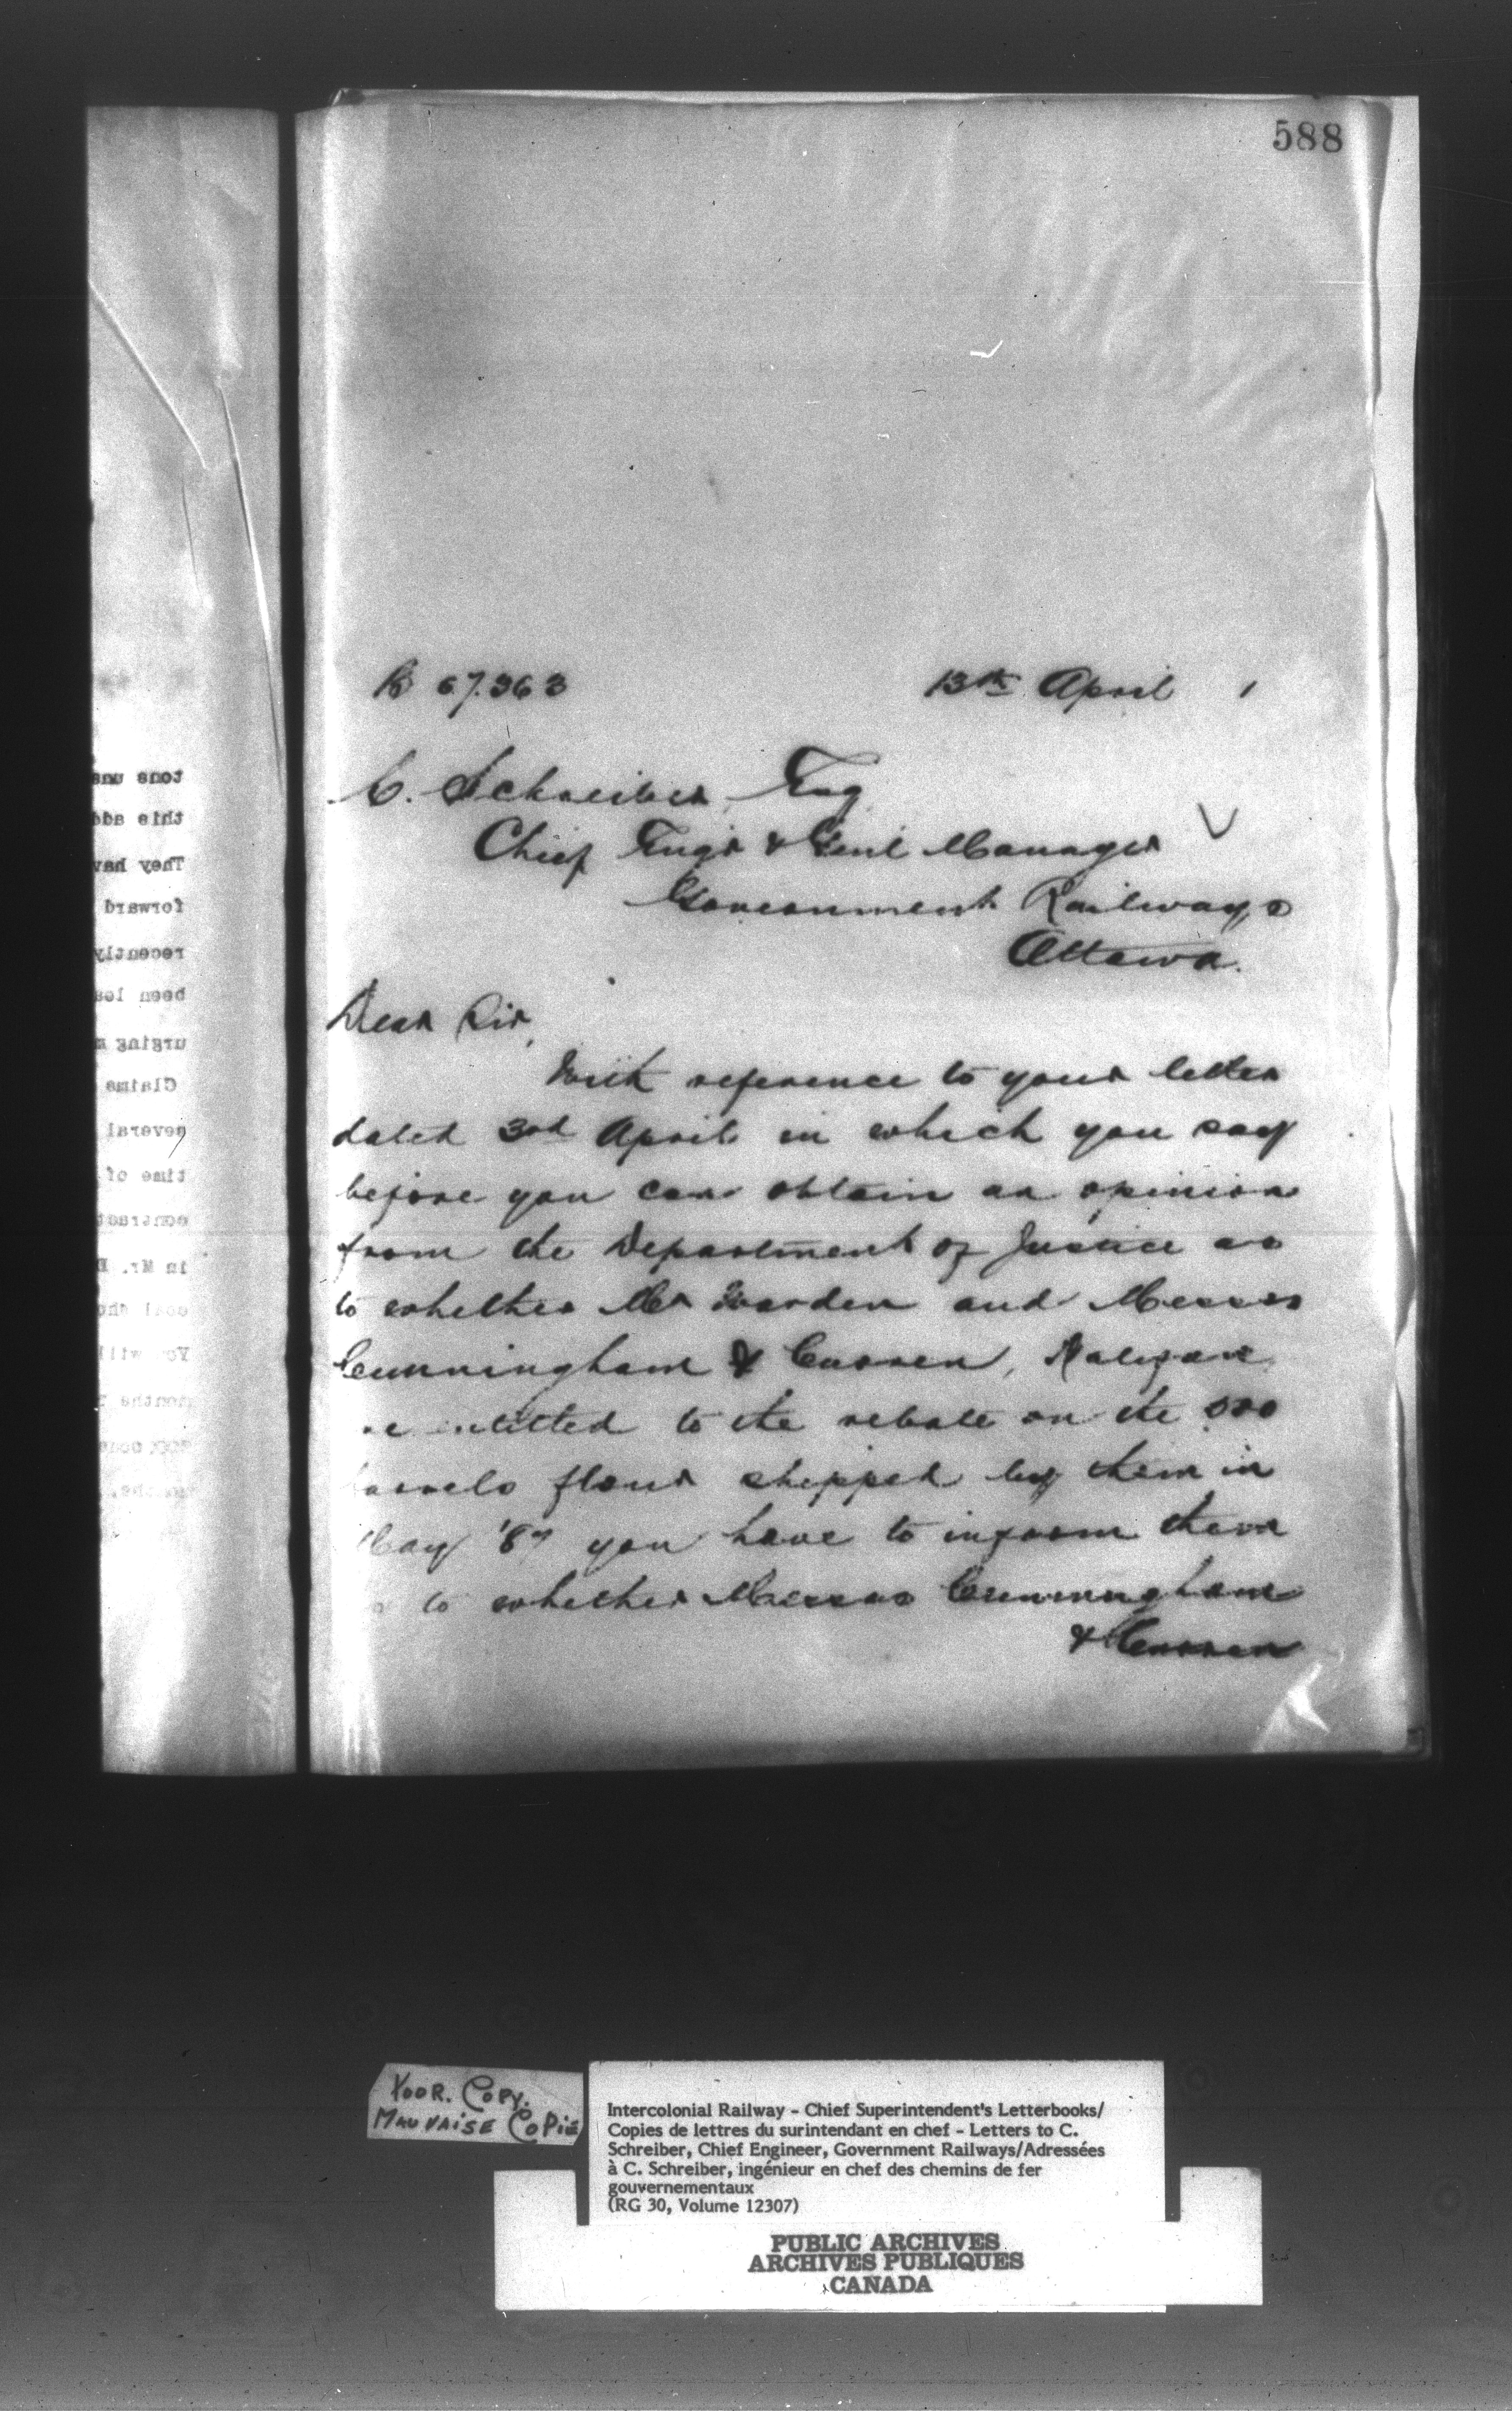 588
67.363 13th April 1
C. Schreiber Esq
Chief Engr & Genl Manager
Government Railways
Ottawa.
Dear Sir,
With reference to your letter
dated 3rd April in which you say
before you can obtain an opinion
from the Department of Justice as
to whether Mr and Messrs
Cunningham & Curren, Halifax
entitled to the rebate on the
flour shipped by them in
'87 you have to inform them
to whether Messrs Cunningham
& Curren
tons uns
this add
They hav
forward
recently
been los
urging m
Claims
several
time of
contract
in Mr.
coal
You will
months
POOR. COPY.
MAUVAISE COPIE
Intercolonial Railway - Chief Superintendent's Letterbooks/
Copies de lettres du surintendant en chef - Letters to C.
Schreiber, Chief Engineer, Government Railways/Adressées
à C. Schreiber, ingénieur en chef des chemins de fer
gouvernementaux
(RG 30, Volume 12307)
PUBLIC ARCHIVES
ARCHIVES PUBLIQUES
CANADA